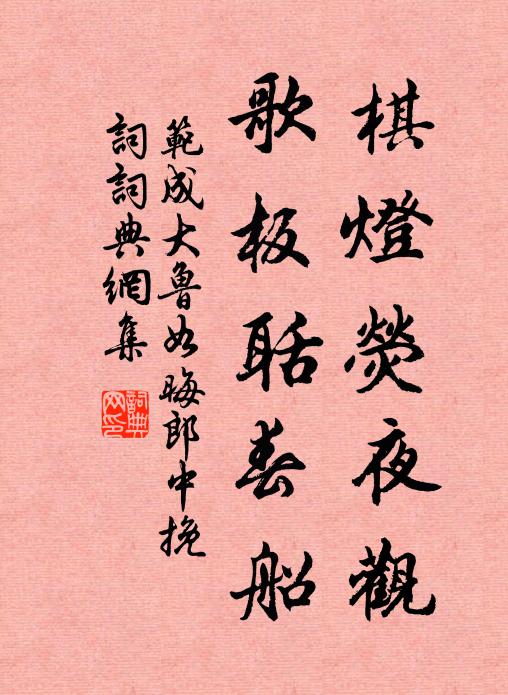 棋燈熒夜觀
歌板聒春船
範成大魯如晦郎中挽
詞詞典網集
詞典
网印